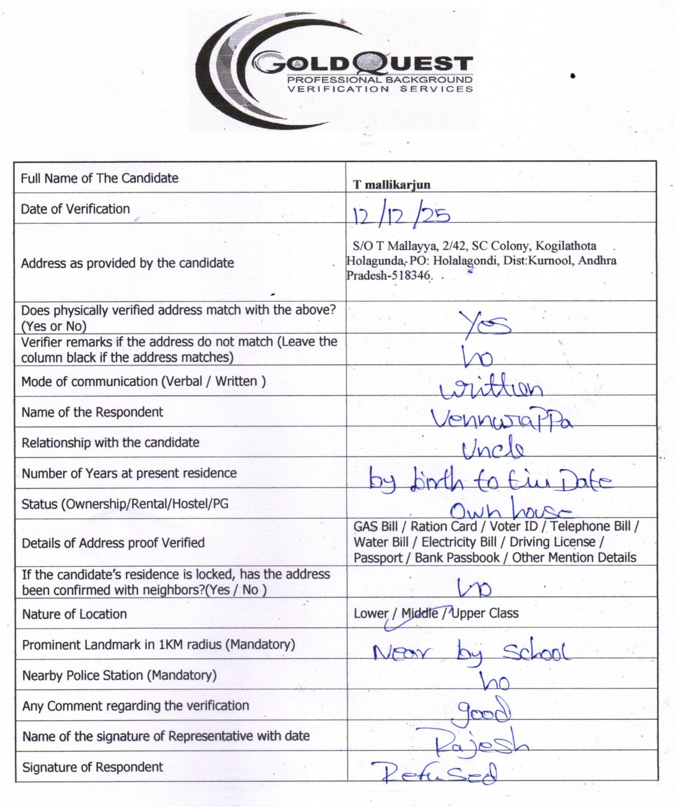 GOLDQUEST
PROFESSIONAL BACKGROUND
VERIFICATION SERVICES
Full Name of The Candidate
T mallikarjun
Date of Verification
12/12/25
Address as provided by the candidate
S/O T Mallayya, 2/42, SC Colony, Kogilathota
Holagunda, PO: Holalagondi, Dist:Kurnool, Andhra
Pradesh-518346.
Does physically verified address match with the above?
(Yes or No)
Yes
Verifier remarks if the address do not match (Leave the
column black if the address matches)
No
Mode of communication (Verbal / Written )
written
Name of the Respondent
Vennurappa
Relationship with the candidate
Uncle
Number of Years at present residence
by birth to till Date
Status (Ownership/Rental/Hostel/PG
Own house
Details of Address proof Verified
GAS Bill / Ration Card / Voter ID / Telephone Bill /
Water Bill / Electricity Bill / Driving License /
Passport / Bank Passbook / Other Mention Details
If the candidate's residence is locked, has the address
been confirmed with neighbors?(Yes / No )
No
Nature of Location
Lower / Middle / Upper Class
Prominent Landmark in 1KM radius (Mandatory)
Near by School
Nearby Police Station (Mandatory)
No
Any Comment regarding the verification
good
Name of the signature of Representative with date
Rajesh
Signature of Respondent
Refused